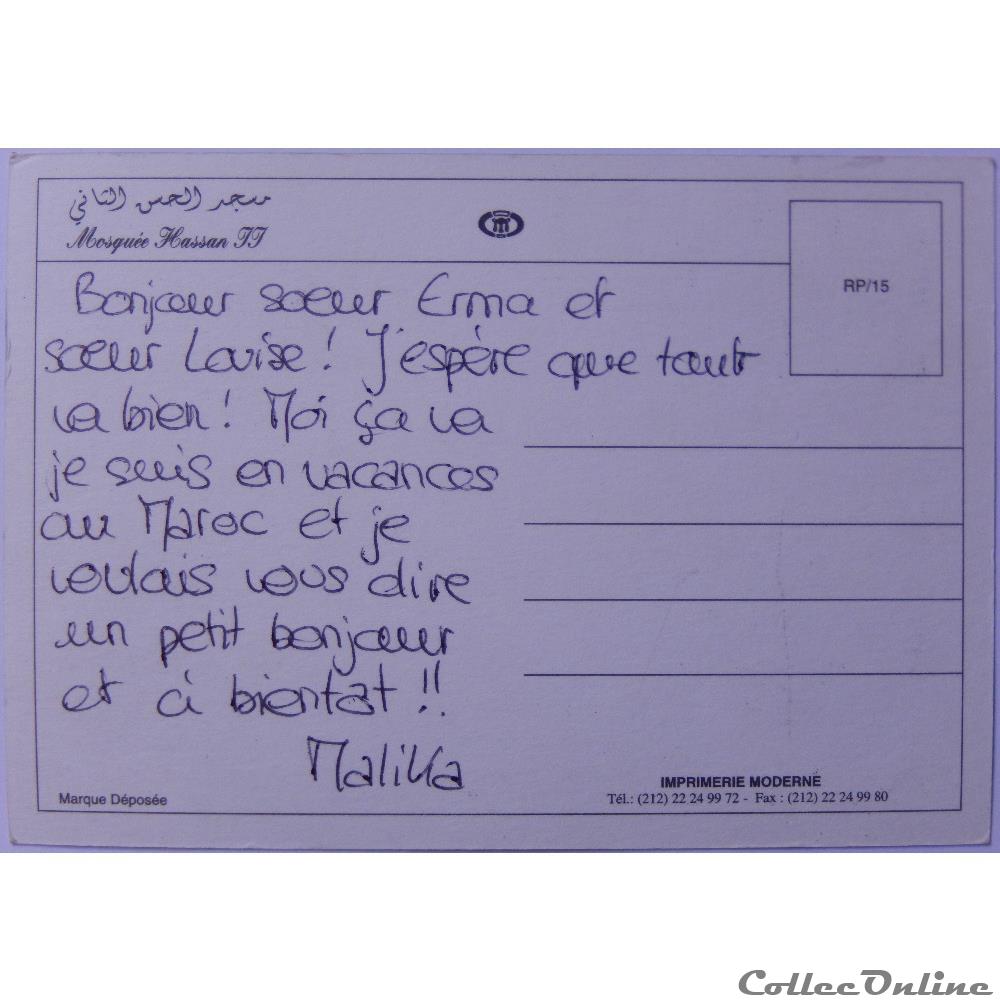 مسجد الحسن الثاني
Mosquée Hassan II
RP/15
Bonjour soeur Erma et
soeur Louise! J'espère que tout
va bien! Moi ça va
je suis en vacances
au Maroc et je
voulais vous dire
un petit bonjour
et à bientot!!
Malika
Marque Déposée
IMPRIMERIE MODERNE
Tél.: (212) 22 24 99 72 - Fax : (212) 22 24 99 80
CollecOnline